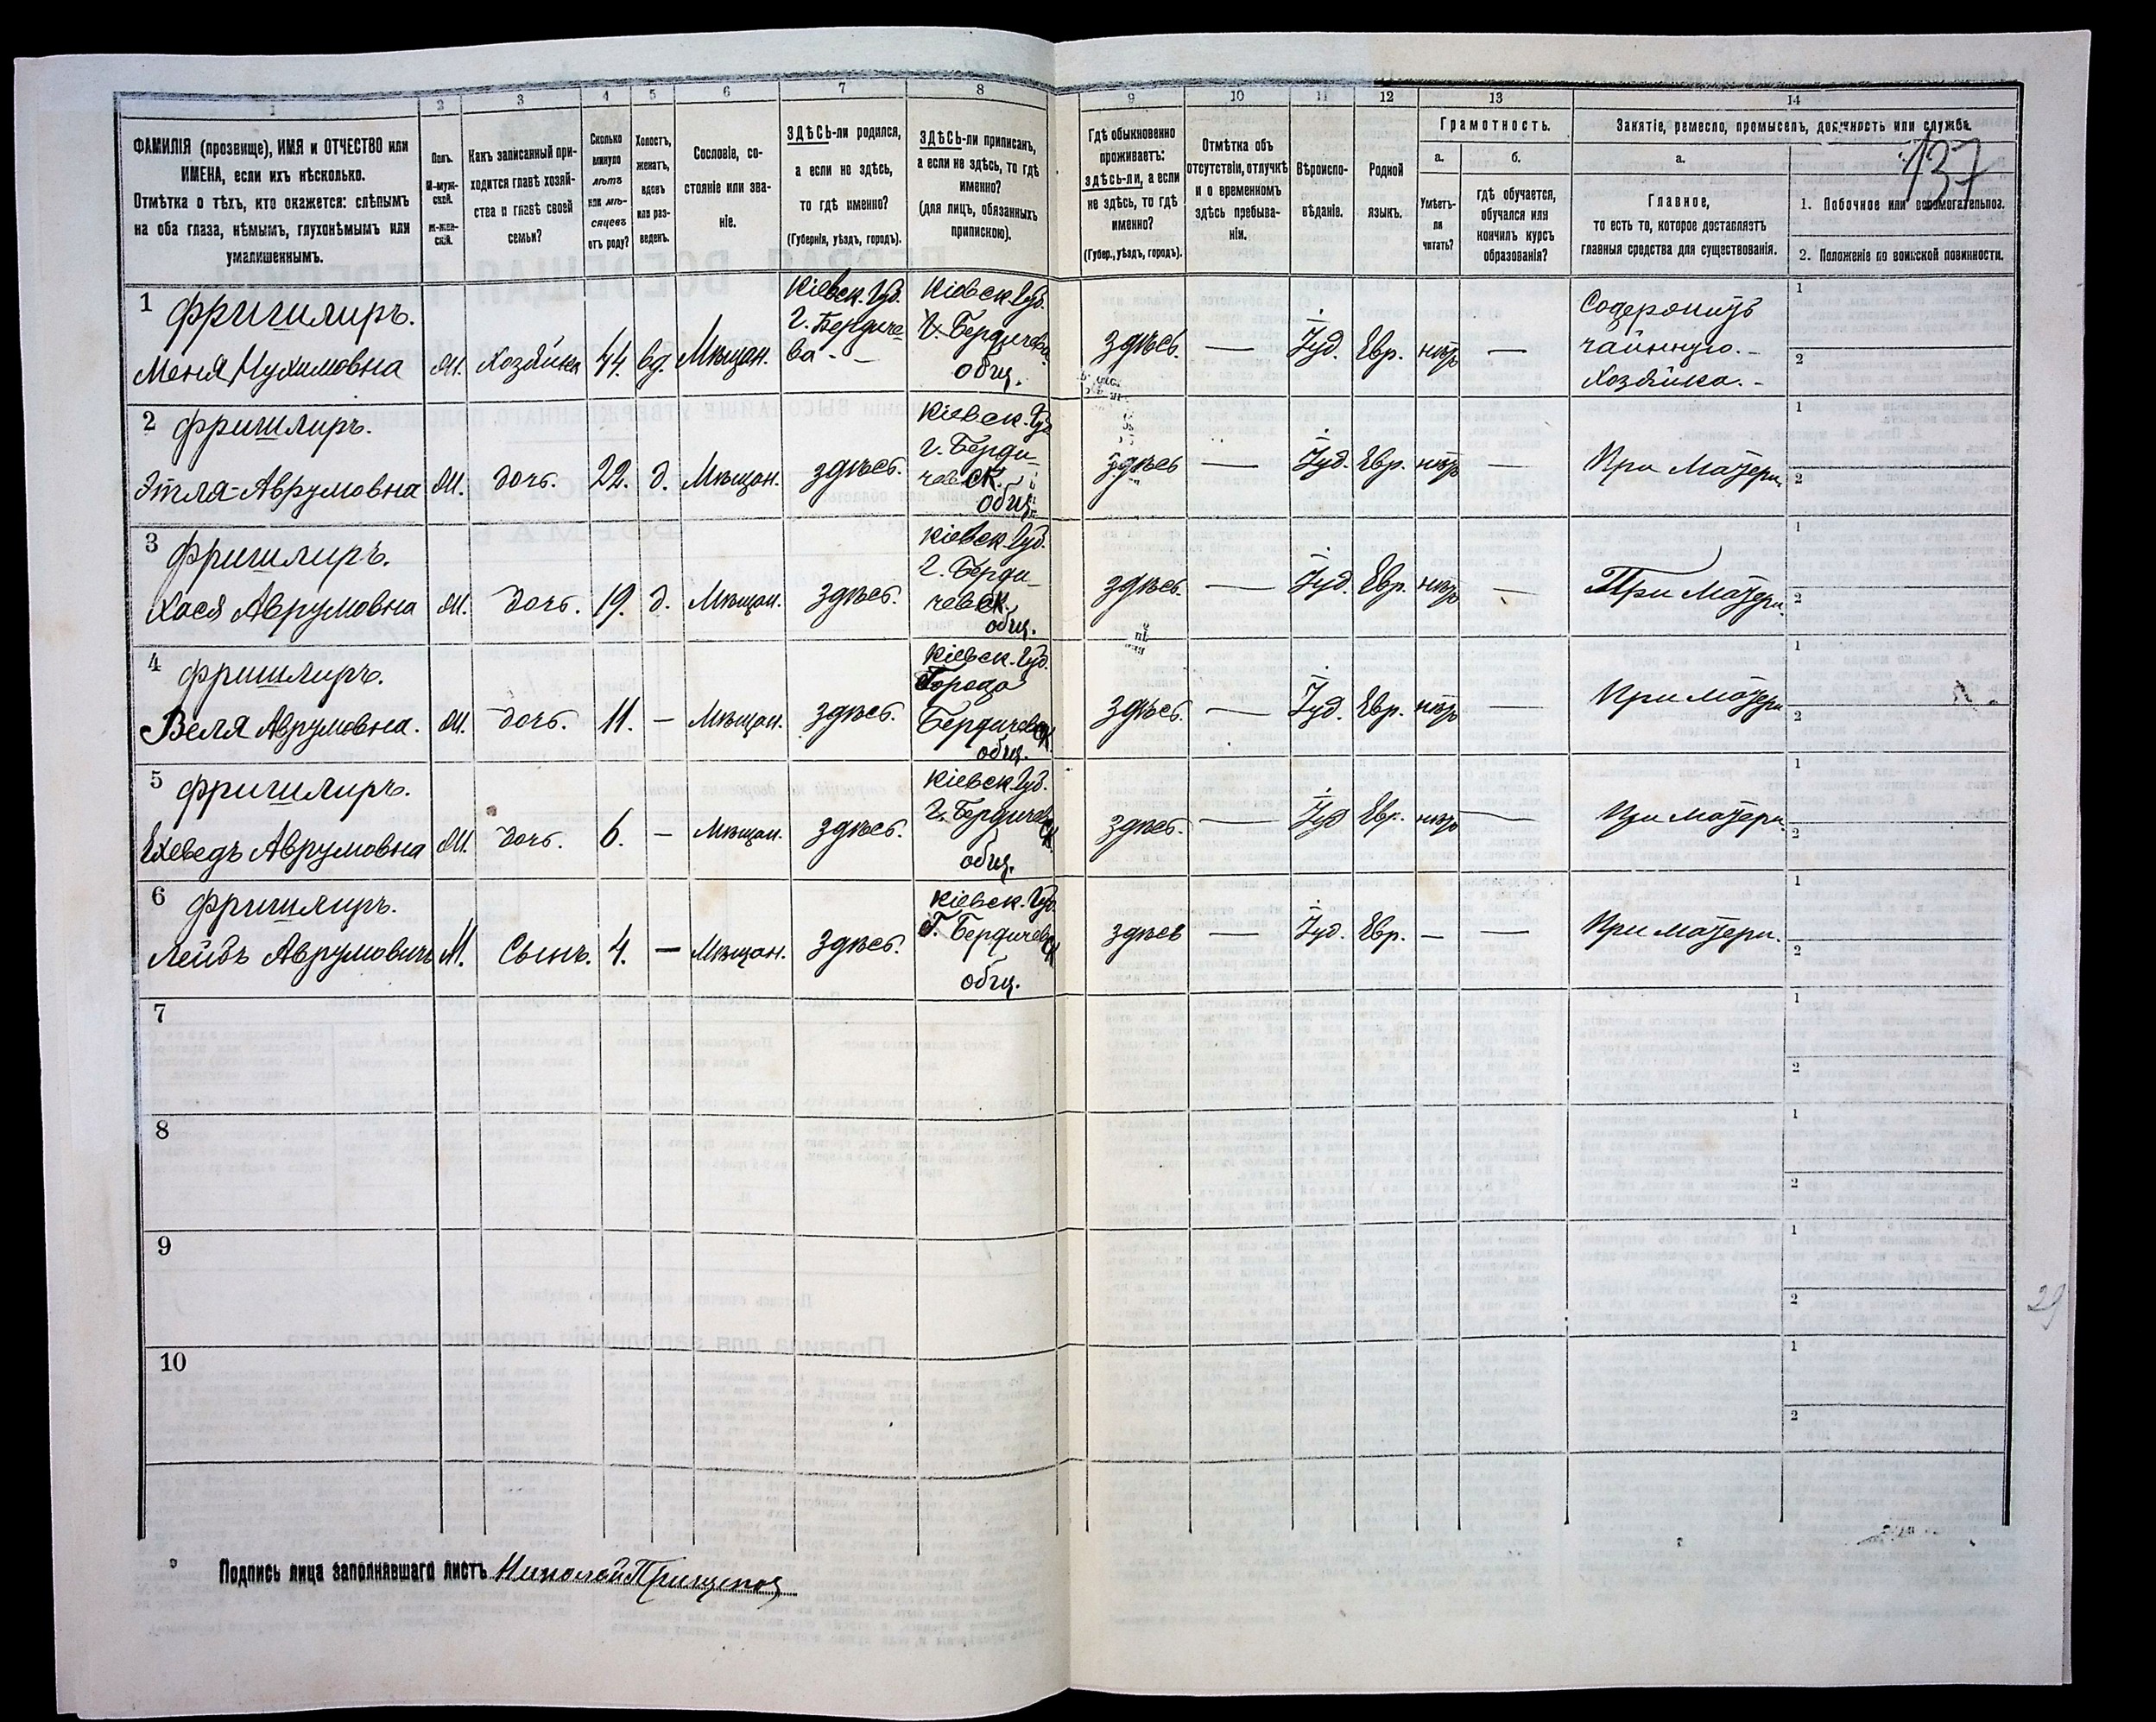 1 2 3 4 5 6 7 8 9 10 11 12 13 14
ФАМИЛІЯ (прозвище), ИМЯ и ОТЧЕСТВО или
ИМЕНА, если ихъ нѣсколько.
Отмѣтка о тѣхъ, кто окажется: слѣпымъ
на оба глаза, нѣмымъ, глухонѣмымъ или
умалишеннымъ.
Полъ.
М-муж-
ской.
Ж-жен-
скій.
Какъ записанный при-
ходится главѣ хозяй-
ства и главѣ своей
семьи?
Сколько
минуло
лѣтъ
или мѣ-
сяцевъ
отъ роду?
Холостъ,
женатъ,
вдовъ
или раз-
веденъ.
Сословіе, со-
стояніе или зва-
ніе.
ЗДѢСЬ-ли родился,
а если не здѣсь,
то гдѣ именно?
(Губернія, уѣздъ, городъ).
ЗДѢСЬ-ли приписанъ,
а если не здѣсь, то гдѣ
именно?
(для лицъ, обязанныхъ
припискою).
Гдѣ обыкновенно
проживаетъ:
здѣсь-ли, а если
не здѣсь, то гдѣ
именно?
(Губер., уѣздъ, городъ).
Отмѣтка объ
отсутствіи, отлучкѣ
и о временномъ
здѣсь пребыва-
ніи.
Вѣроиспо-
вѣданіе.
Родной
языкъ.
Грамотность.
а.
Умѣетъ-
ли
читать?
б.
гдѣ обучается,
обучался или
кончилъ курсъ
образованія?
Занятіе, ремесло, промыселъ, должность или служба.
137
а.
Главное,
то есть то, которое доставляетъ
главныя средства для существованія.
1. Побочное или вспомогательное.
2. Положеніе по воинской повинности.
1 Фришлиръ.
Меня Нухимовна
Хозяйка
44.
вд.
Мѣщан.
Кіевск. Губ.
г. Бердиче-
ва
Кіевск. Губ.
г. Бердичева
общ.
здѣсь. — Іуд. Евр. нѣтъ —
Содержитъ
чайную.
Хозяйка.
1
2
2 Фришлиръ.
Этля-Аврумовна
дочь. 22. д. Мѣщан. здѣсь.
Кіевск. Губ.
г. Берди-
чевск.
общ.
здѣсь — Іуд. Евр. нѣтъ —
При матери.
1
2
3 Фришлиръ.
Хася Аврумовна
дочь. 19. д. Мѣщан. здѣсь.
Кіевск. Губ.
г. Берди-
чевск.
общ.
здѣсь. — Іуд. Евр. нѣтъ —
При матери.
1
2
4 Фришлиръ.
Веля Аврумовна.
дочь. 11. — Мѣщан. здѣсь.
Кіевск. Губ.
Города
Бердичевск.
общ.
здѣсь. — Іуд. Евр. нѣтъ —
При матери
1
2
5 Фришлиръ.
Ехеведъ Аврумовна
дочь. 6. — Мѣщан. здѣсь.
Кіевск. Губ.
г. Бердичевск.
общ.
здѣсь. — Іуд Евр. нѣтъ —
При матери.
1
2
6 Фришлиръ.
Лейбъ Аврумовичъ
М. Сынъ. 4. — Мѣщан. здѣсь.
Кіевск. Губ.
Г. Бердичевск
общ.
здѣсь — Іуд. Евр. — —
При матери.
1
2
7
1
2
8
1
2
9
1
2
29
10
1
2
Подпись лица заполнявшаго листъ Николай